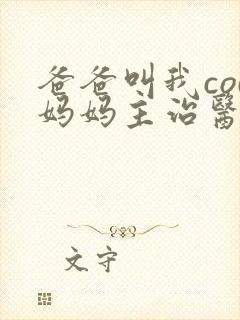 爸爸叫我co
妈妈主治醫
文守